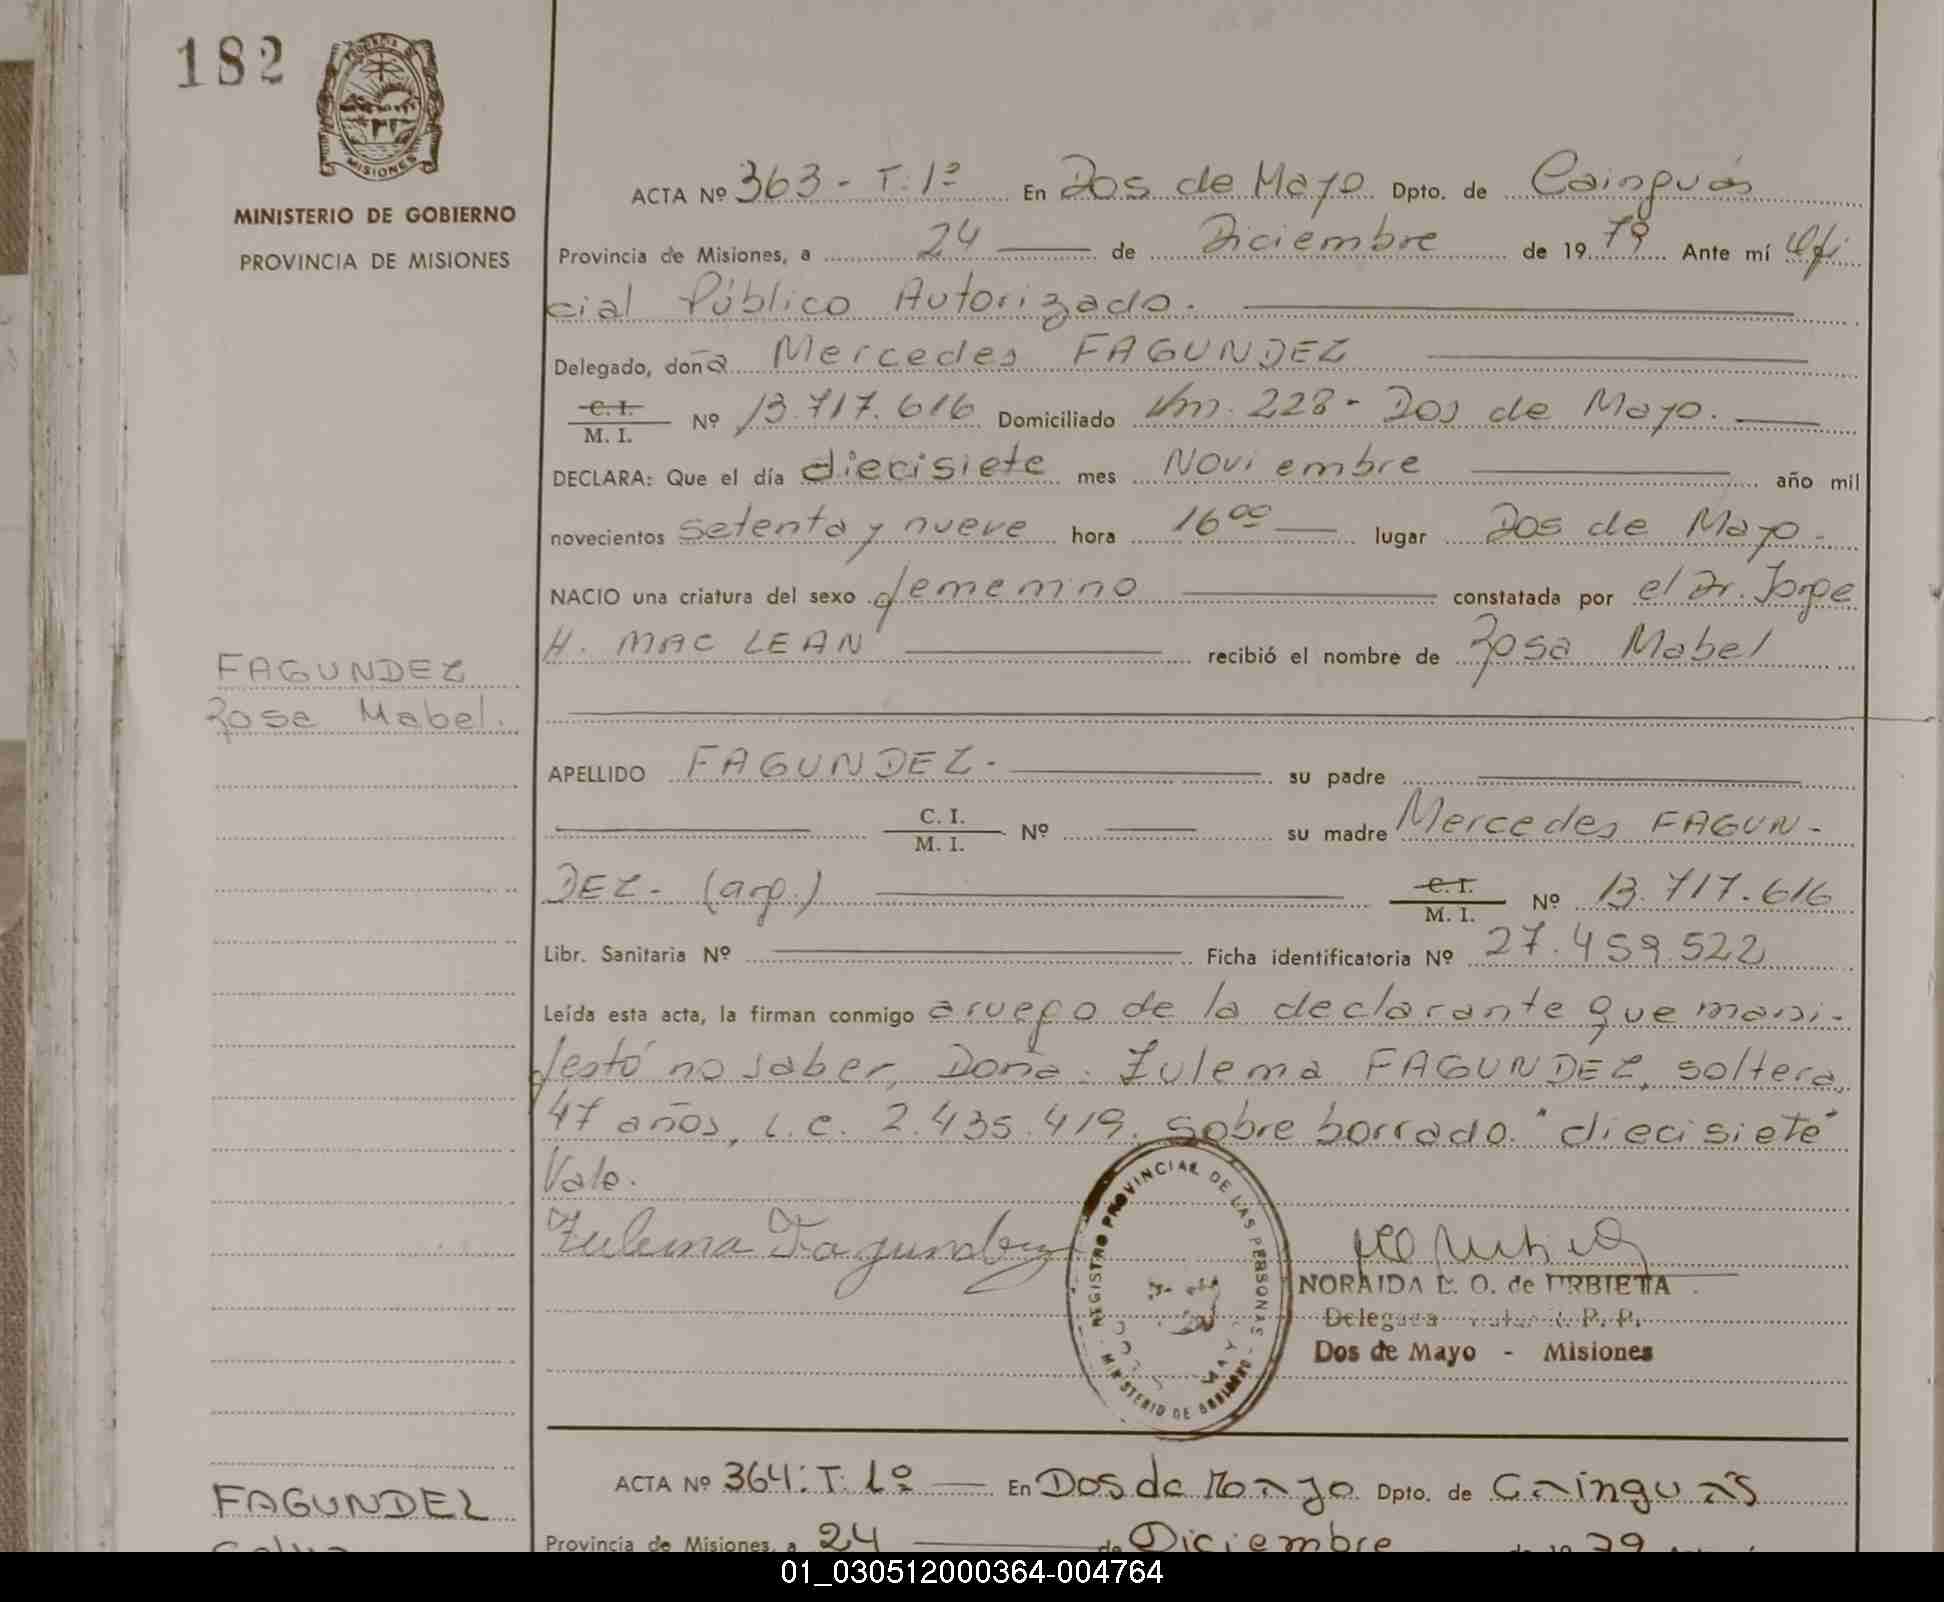 182
MISIONES
MINISTERIO DE GOBIERNO
PROVINCIA DE MISIONES
FAGUNDEZ
Rosa Mabel.
ACTA Nº 363 - T: 1º En Dos de Mayo Dpto. de Cainguás
Provincia de Misiones, a 24 de Diciembre de 1979 Ante mí Ofi
cial Público Autorizado.
Delegado, doña Mercedes FAGUNDEZ
C. I. / M. I. Nº 13.717.616 Domiciliado Km. 228 - Dos de Mayo.
DECLARA: Que el día diecisiete mes Noviembre año mil
novecientos setenta y nueve hora 16 00 lugar Dos de Mayo.
NACIO una criatura del sexo femenino constatada por el Dr. Jorge
H. MAC LEAN recibió el nombre de Rosa Mabel
APELLIDO FAGUNDEZ. su padre
C. I. / M. I. Nº su madre Mercedes FAGUN-
DEZ - (arg.) C. I. / M. I. Nº 13.717.616
Libr. Sanitaria Nº Ficha identificatoria Nº 27.459.522
Leída esta acta, la firman conmigo a ruego de la declarante que mani-
festó no saber, Doña: Zulema FAGUNDEZ, soltera,
47 años, L.C. 2.435.419. Sobre borrado: "diecisiete"
Vale.
Zulema Fagundez
REGISTRO PROVINCIAL DE LAS PERSONAS - MINISTERIO DE GOBIERNO
NORAIDA E. O. de URBIETA
Delegada R. P. P.
Dos de Mayo - Misiones
FAGUNDEZ
ACTA Nº 364: T: 1º En Dos de Mayo Dpto. de Cainguás
Provincia de Misiones, a 24 de Diciembre de 1979
01_030512000364-004764